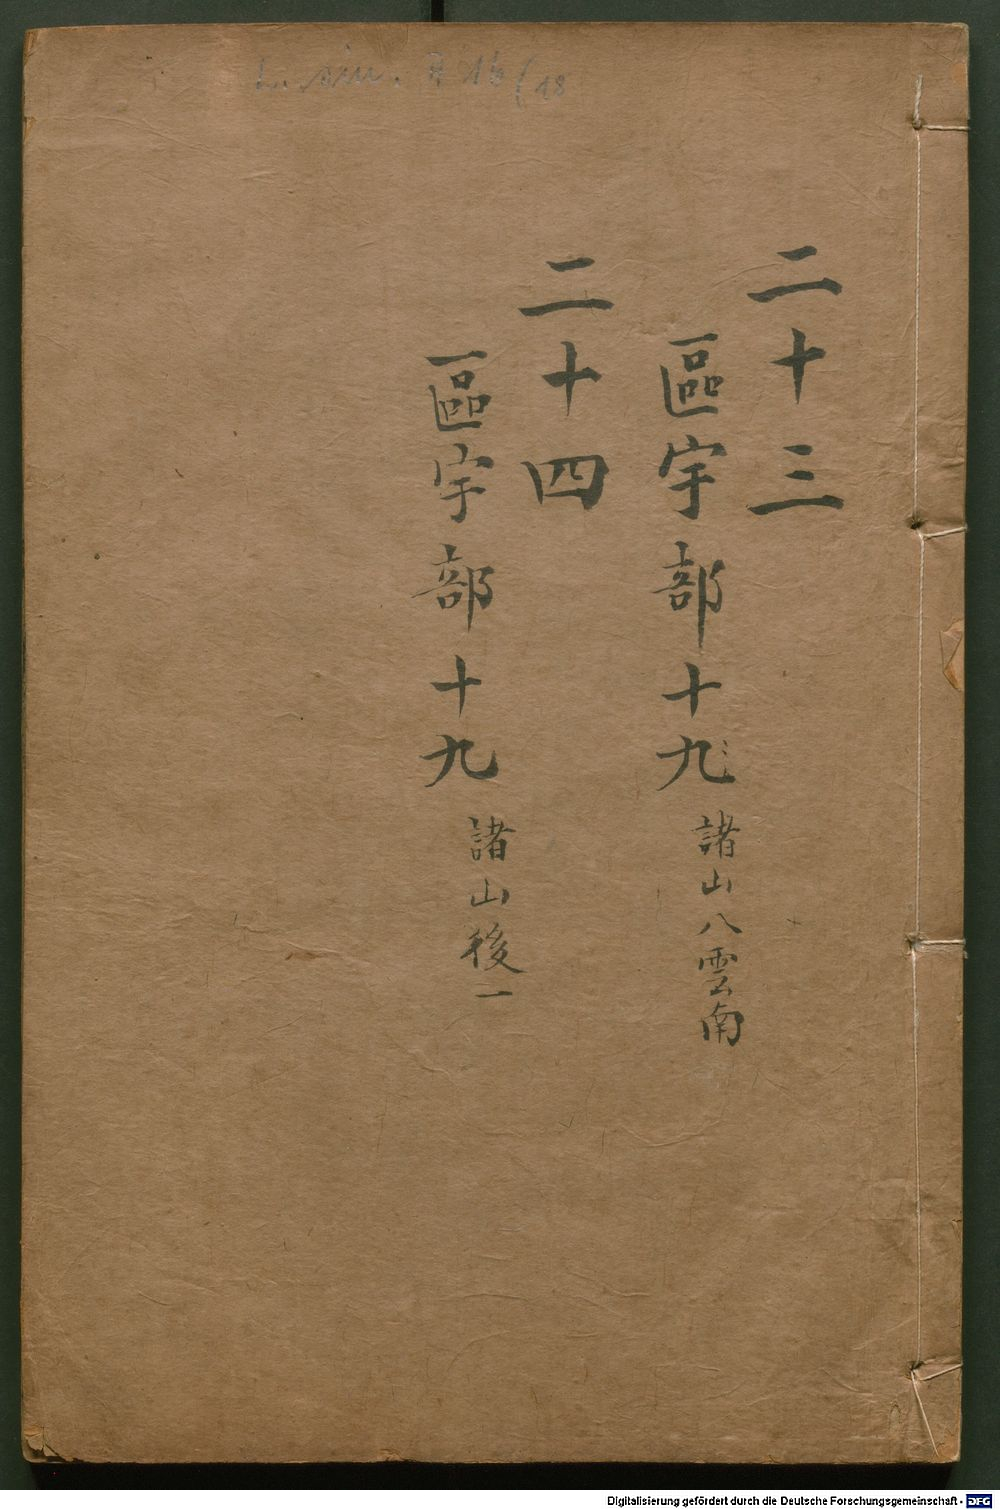 L. sin. A 16(18
二十三
區宇部十九諸山八雲南
二十四
區宇部十九諸山後一
Digitalisierung gefördert durch die Deutsche Forschungsgemeinschaft - DFG